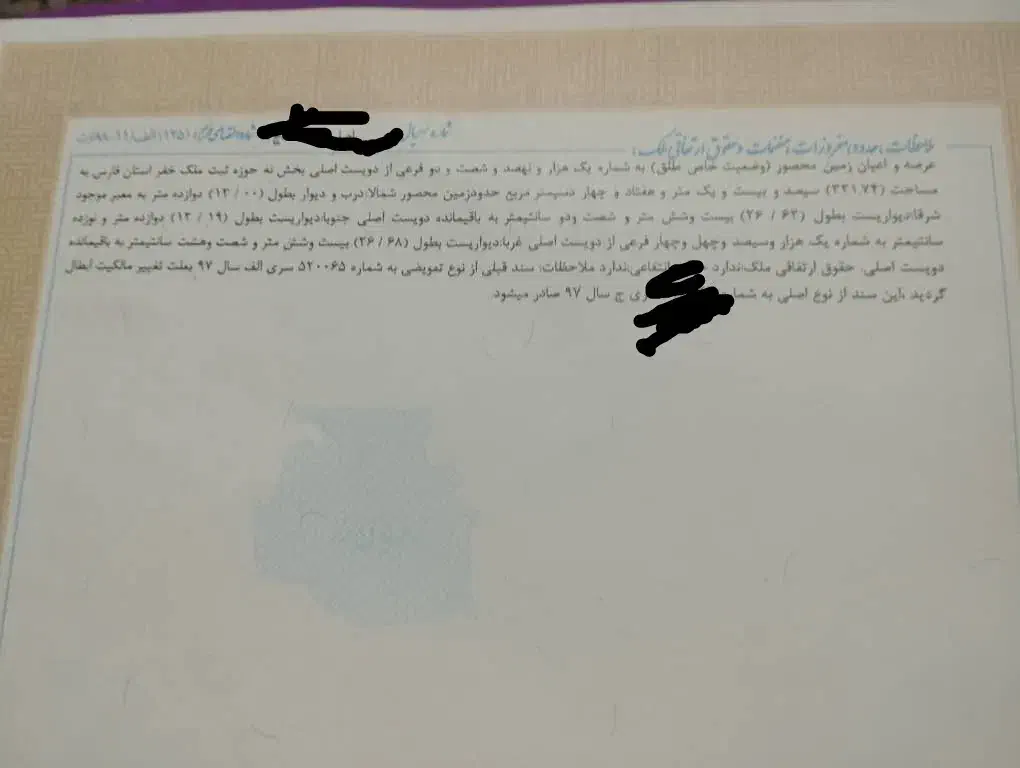 ملاحظات، حدود، مفروزات، منضمات و حقوق ارتفاقی ملک:
شماره سریال
عرصه و اعیان زمین محصور (وضعیت خاص طلق) به شماره یک هزار و نهصد و شصت و دو فرعی از دویست اصلی بخش نه حوزه ثبت ملک خفر استان فارس به
مساحت (۳۲۱.۷۴) سیصد و بیست و یک متر و هفتاد و چهار دسیمتر مربع حدودزمین محصور شمالا:درب و دیوار بطول (۱۲/۰۰) دوازده متر به معبر موجود
شرقا:دیواریست بطول (۲۶/۶۲) بیست وشش متر و شصت ودو سانتیمتر به باقیمانده دویست اصلی جنوبا:دیواریست بطول (۱۲/۱۹) دوازده متر و نوزده
سانتیمتر به شماره یک هزار وسیصد وچهل وچهار فرعی از دویست اصلی غربا:دیواریست بطول (۲۶/۶۸) بیست وشش متر و شصت وهشت سانتیمتر به باقیمانده
دویست اصلی. حقوق ارتفاقی ملک:ندارد انتفاعی:ندارد ملاحظات: سند قبلی از نوع تعویضی به شماره ۵۲۰۰۶۵ سری الف سال ۹۷ بعلت تغییر مالکیت ابطال
گردید ،این سند از نوع اصلی به ج سال ۹۷ صادر میشود.